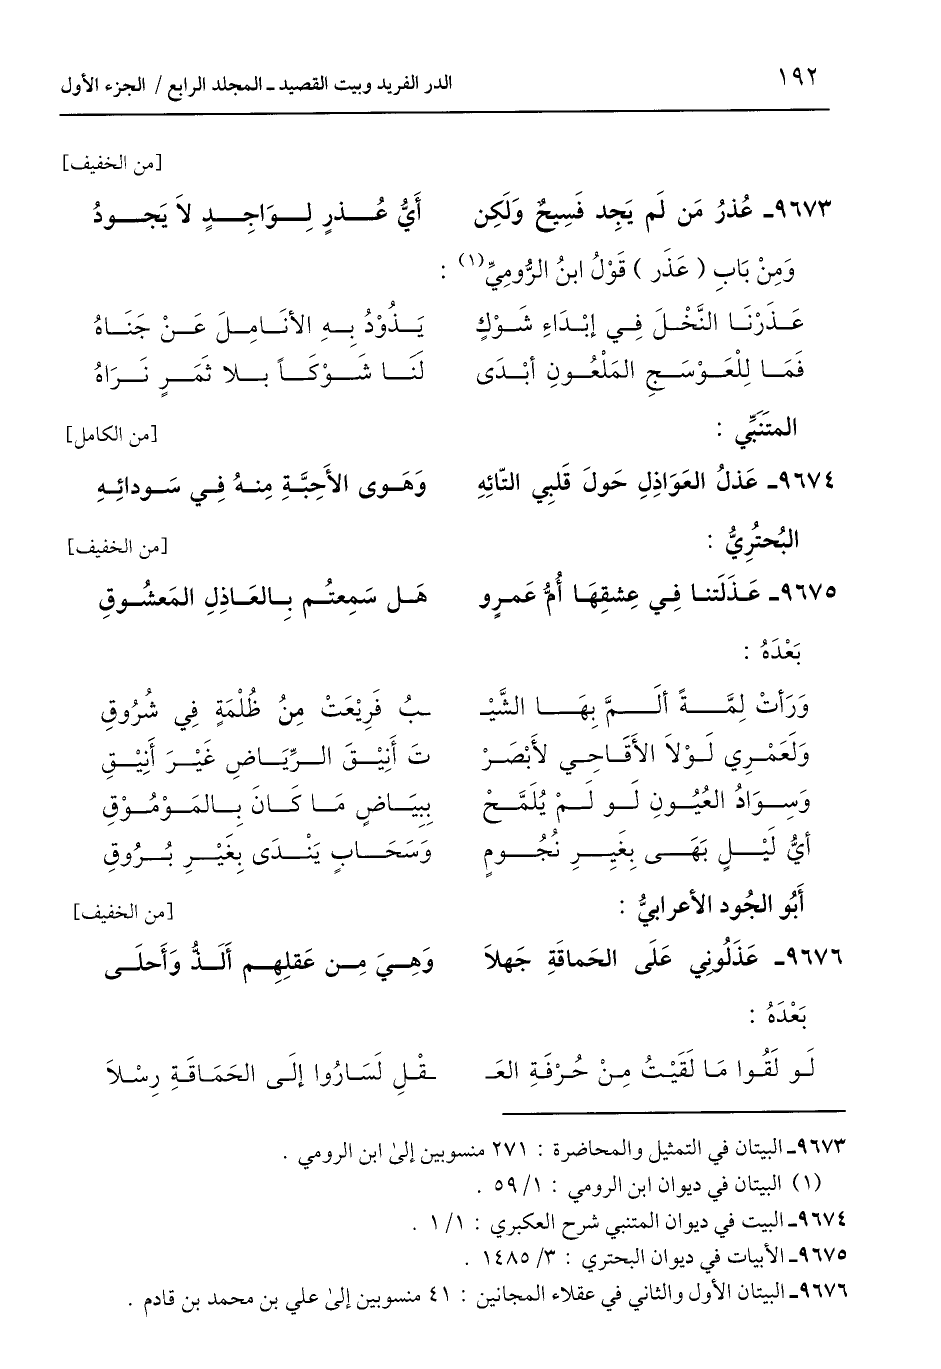 ١٩٢ الدر الفريد وبيت القصيد ـ المجلد الرابع / الجزء الأول
[من الخفيف]
٩٦٧٣ـ عُذرُ مَن لَم يَجِد فَسِيحٌ وَلَكِن أَيُّ عُـــذرٍ لِـــوَاجِـــدٍ لاَ يَجُـــودُ
وَمِنْ بَابِ ( عَذَر ) قَوْلُ ابنُ الرُّومِيِّ(١) :
عَـذَرْنَـا النَّخْـلَ فِـي إبْـدَاءِ شَـوْكٍ يَــذُوْدُ بِــهِ الأنَــامِــلَ عَــنْ جَنَــاهُ
فَمَــا لِلْعَــوْسَــجِ المَلْعُــونِ أبْــدَى لَنَــا شَــوْكَــاً بِــلا ثَمَــرٍ نَــرَاهُ
المتَنَبِّي :
[من الكامل]
٩٦٧٤ـ عَذلُ العَوَاذِلِ حَولَ قَلبِي التّائِهِ وَهَـوى الأَحِبَّـةِ مِنـهُ فِـي سَـودائِـهِ
البُحتُرِيُّ :
[من الخفيف]
٩٦٧٥ـ عَـذَلَتنـا فِـي عِشقِهَـا أُمُّ عَمـرٍو هَـل سَمِعتُـم بِـالعَـاذِلِ المَعشُـوقِ
بَعْدَهُ :
وَرَأتْ لِمَّــــةً ألَــــمَّ بِهَــــا الشَّيْــ ــبُ فَرِيْعَتْ مِنُ ظُلْمَةٍ فِي شُرُوقِ
وَلَعَمْرِي لَـوْلاَ الأقَـاحِـي لأبْصَـرْ تَ أنِيْــقَ الــرِّيَــاضِ غَيْــرَ أنِيْــقِ
وَسِـوَادُ العُيُـونِ لَـو لَـمْ يُلَمَّـحْ بِبِيَـاضٍ مَـا كَـانَ بِـالمَـوْمُـوْقِ
أيُّ لَيْــــلٍ بَهَــــى بِغَيــرِ نُجُــومٍ وَسَحَــابٍ يَنْــدَى بِغَيْــرِ بُــرُوقِ
أَبُو الجُود الأعرابيُّ :
[من الخفيف]
٩٦٧٦ـ عَذَلُونِي عَلَى الحَماقَةِ جَهلاَ وَهِـيَ مِـن عَقلِهِـم أَلَـذُّ وَأحلَـى
بَعْدَهُ :
لَو لَقُوا مَا لَقَيْتُ مِنْ حُرْفَةِ العَـ ـقْلِ لَسَارُوا إلَى الحَمَاقَةِ رِسْلاَ
٩٦٧٣ـ البيتان في التمثيل والمحاضرة : ٢٧١ منسوبين إلىٰ ابن الرومي .
(١) البيتان في ديوان ابن الرومي : ١/ ٥٩ .
٩٦٧٤ـ البيت في ديوان المتنبي شرح العكبري : ١/ ١ .
٩٦٧٥ـ الأبيات في ديوان البحتري : ٣/ ١٤٨٥ .
٩٦٧٦ـ البيتان الأول والثاني في عقلاء المجانين : ٤١ منسوبين إلىٰ علي بن محمد بن قادم .